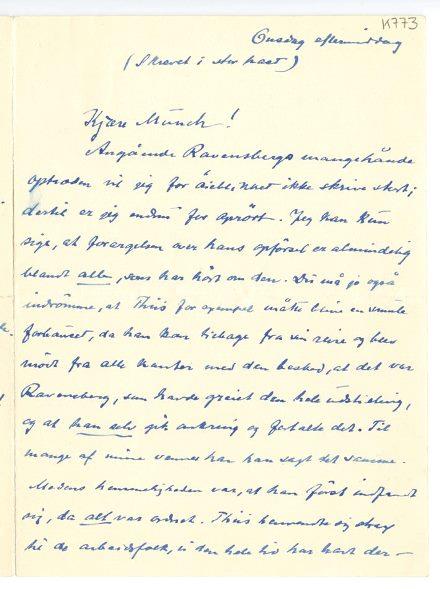 K773
Onsdag eftermiddag
(Skrevet i stor hast)
Kjære Munch!
Angående Ravensbergs mangehånde
optræden vil jeg for øieblikket ikke skrive stort;
dertil er jeg endnu for oprört. Jeg kan kun
sige, at forargelsen over hans opförsel er almindelig
blandt allen, som har hört om den. Du må jo også
indrömme, at Thiis for exempel måtte blive en smule
forbauset, da han kom tilbage fra sin reise og blev
mödt fra alle kanter med den besked, at det var
Ravensberg, som havde greiet den hele udstilling,
og at han selv gik omkring og fortalte det. Til
mange af mine venner har han sagt det samme.
Medens hemmeligheden var, at han först indfandt
sig, da alt var ordnet. Thiis henvendte sig strax
til de arbeidsfolk, vi den hele tid har havt der-